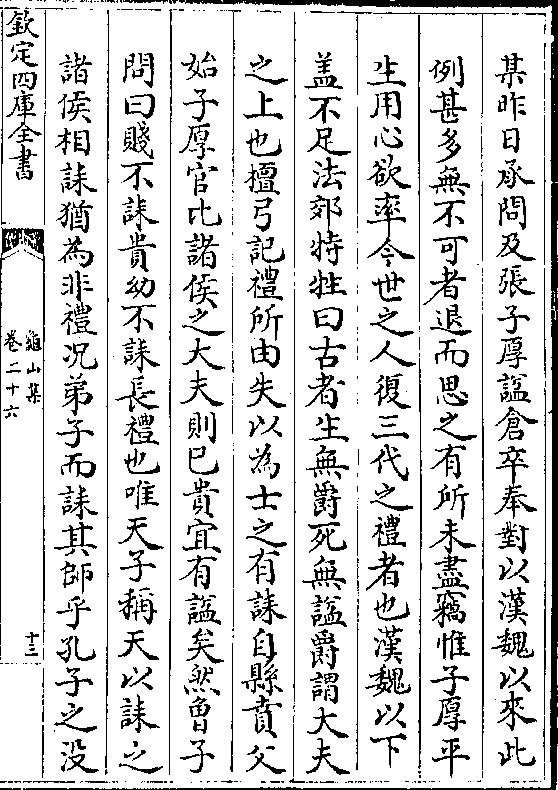 某昨日承問及張子厚諡倉卒奉對以漢魏以來此
例甚多無不可者退而思之有所未盡竊惟子厚平
生用心欲率今世之人復三代之禮者也漢魏以下
盖不足法郊特牲曰古者生無爵死無諡爵謂大夫
之上也檀弓記禮所由失以為士之有誄自縣賁父
始子厚官比諸侯之大夫則已貴宜有諡矣然魯子
問曰賤不誄貴幼不誄長禮也唯天子稱天以誄之
諸侯相誄猶為非禮况弟子而誄其師乎孔子之没
欽定四庫全書
龜山集
卷二十六
十三